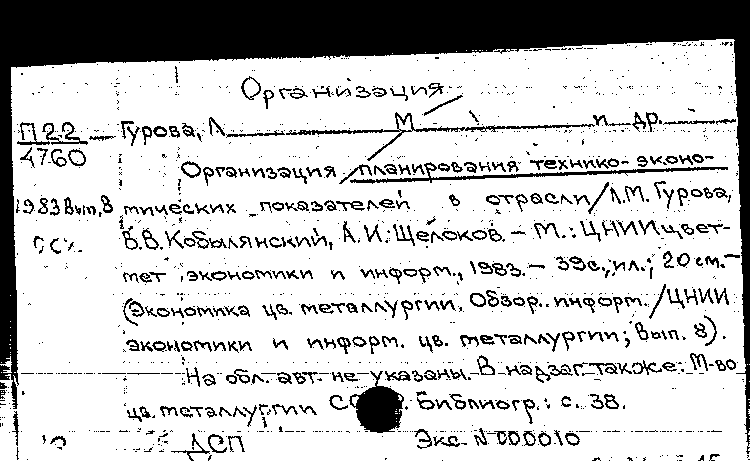 Организация
П22 Гурова, Л М и др.
4760
Организация планирования технико-эконо-
1983 Вып, 8 мических показателей в отрасли/Л.М. Гурова,
В.В. Кобылянский, А.И. Щелоков. – М.: ЦНИИцвет-
мет экономики и информ., 1983. – 39 с., ил.; 20 см. –
(Экономика цв. металлургии. Обзор. информ. /ЦНИИ
экономики и информ. цв. металлургии; Вып. 8).
На обл. авт. не указаны. В надзаг. также: М-во
цв. металлургии Библиогр.: с. 38.
ДСП Экс. N 000010